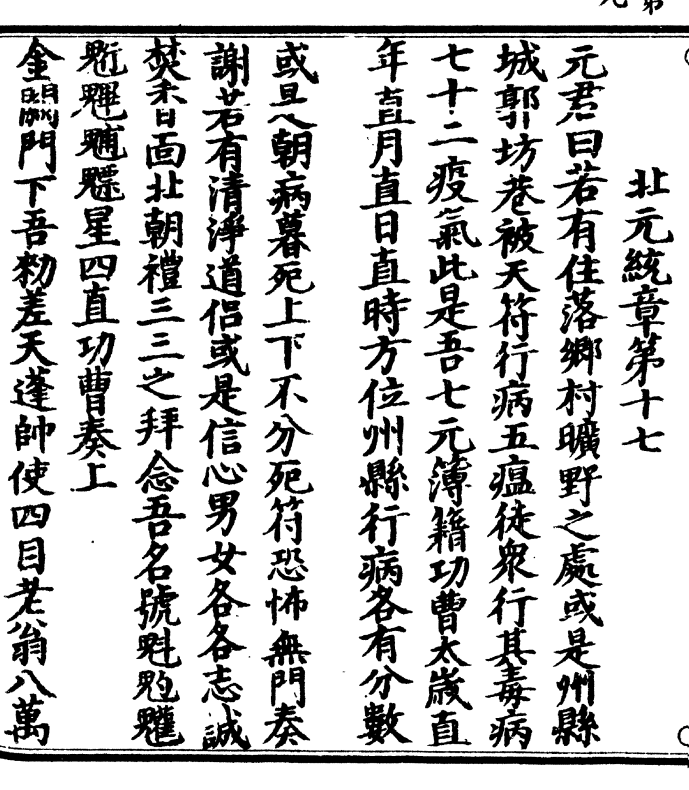 北元統章第十七
元君曰若有住落鄉村曠野之處或是州縣
城郭坊巷被天符行病五瘟徒衆行其毒病
七十二疫氣此是吾七元簿籍功曹太歲直
年直月直日直時方位州縣行病各有分數
或是朝病暮死上下不分死符恐怖無門奏
謝若有清淨道侶或是信心男女各各志誠
焚香面北朝禮三三之拜念吾名號魁𩲃魓
魒星四直功曹奏上
金闕門下吾勑差天蓬帥使四目老翁八萬